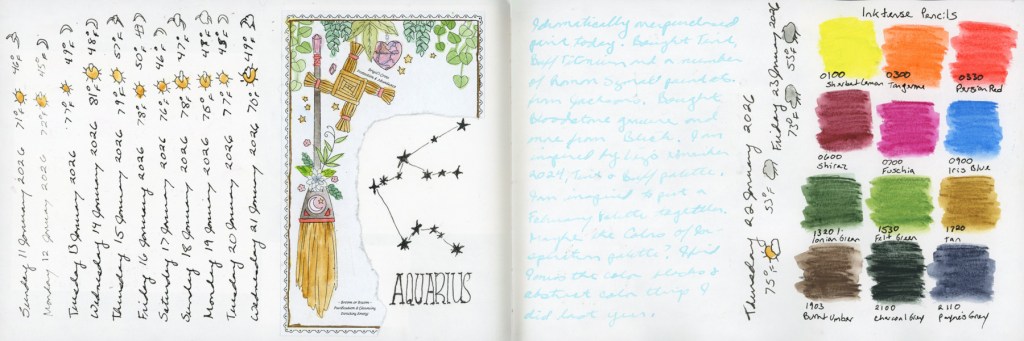 Sunday 11 January 2026 71°F 46°F
Monday 12 January 2026 72°F 45°F
Tuesday 13 January 2026 77°F 49°F
Wednesday 14 January 2026 81°F 48°F
Thursday 15 January 2026 79°F
Friday 16 January 2026 78°F 50°F
Saturday 17 January 2026 76°F 46°F
Sunday 18 January 2026 78°F 47°F
Monday 19 January 2026 76°F 48°F
Tuesday 20 January 2026 77°F 48°F
Wednesday 21 January 2026 70°F 49°F
Brigid's Cross
- Broom or Besom -
Purification & Cleansing
Energy
AQUARIUS
I dramatically
paint today. Bought
Buff Titanium and a number
of Roman Szmal paint
from Jackson's. Bought
bloodstone genuine and
more from Blick. I'm
inspired by
2024,
I'm inspired to put a
February palette together.
Maybe the Colors of
palette? And
the color blocks &
abstract color things I
did last year.
Thursday 22 January 2026 75°F 53°F
Friday 23 January 2026 73°F 53°F
Inktense Pencils
0100
Sherbet Lemon
0300
Tangerine
0330
Persian Red
0600
Shiraz
0700
Fuschia
0900
Iris Blue
1320
Ionian Green
1530
Felt Green
1720
Tan
1903
Burnt Umber
2100
Charcoal Grey
2110
Payne's Grey